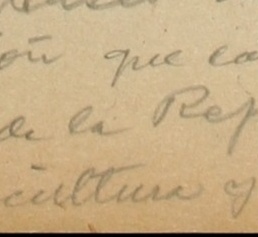 ón que la
de la Rep
cultura y